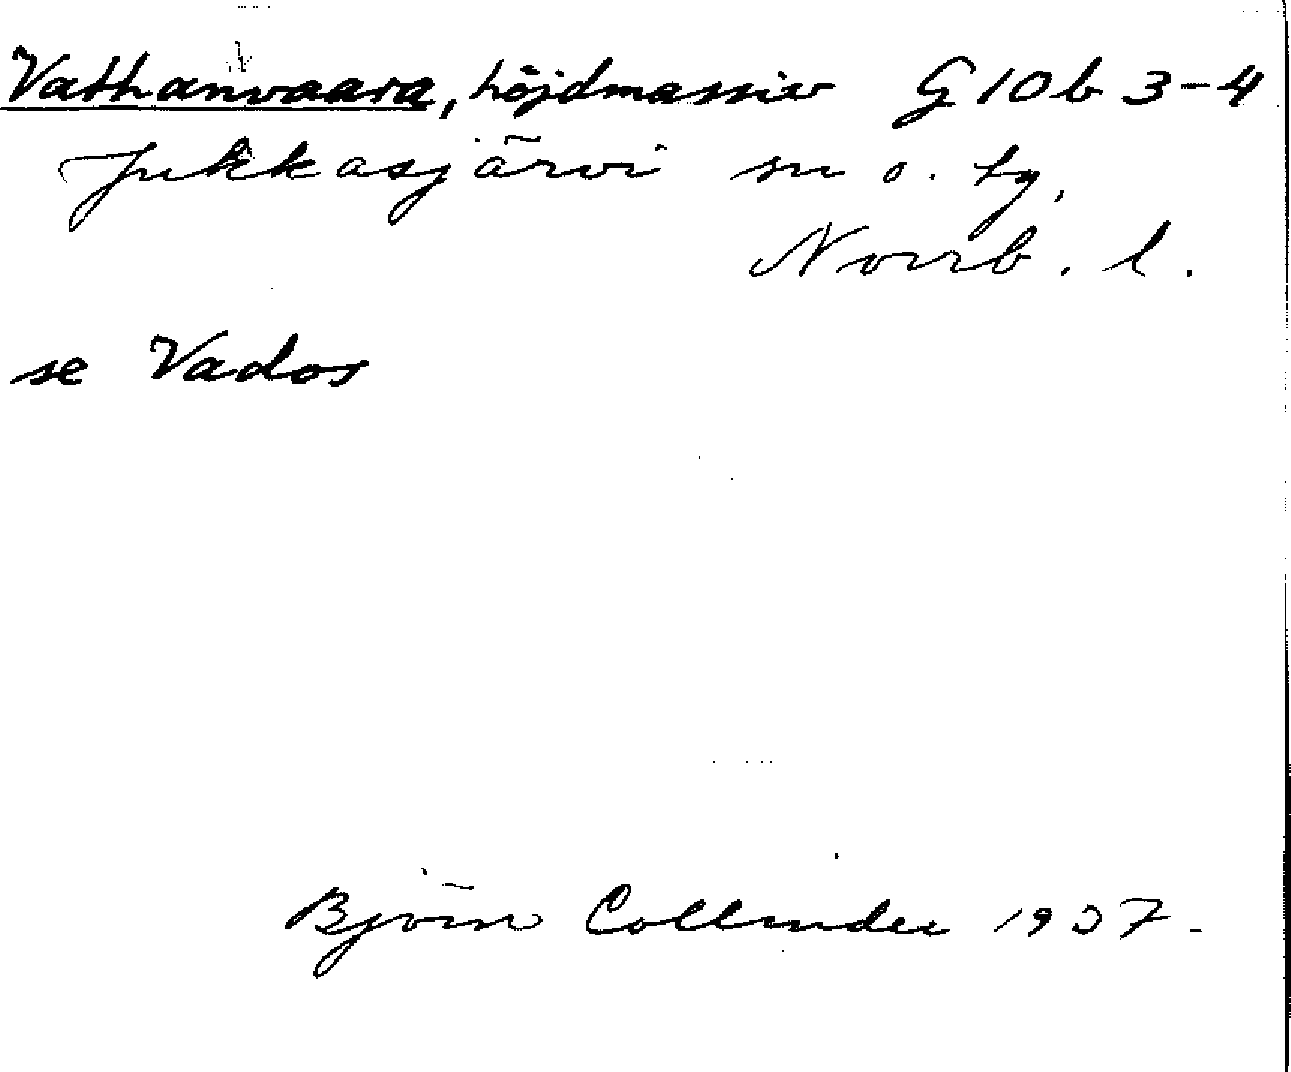 Vathanvaara, höjdmassiv G 10 b 3-4
Jukkasjärvi sn o. tg,
Norrb. l.
se Vados
Björn Collinder 1937.